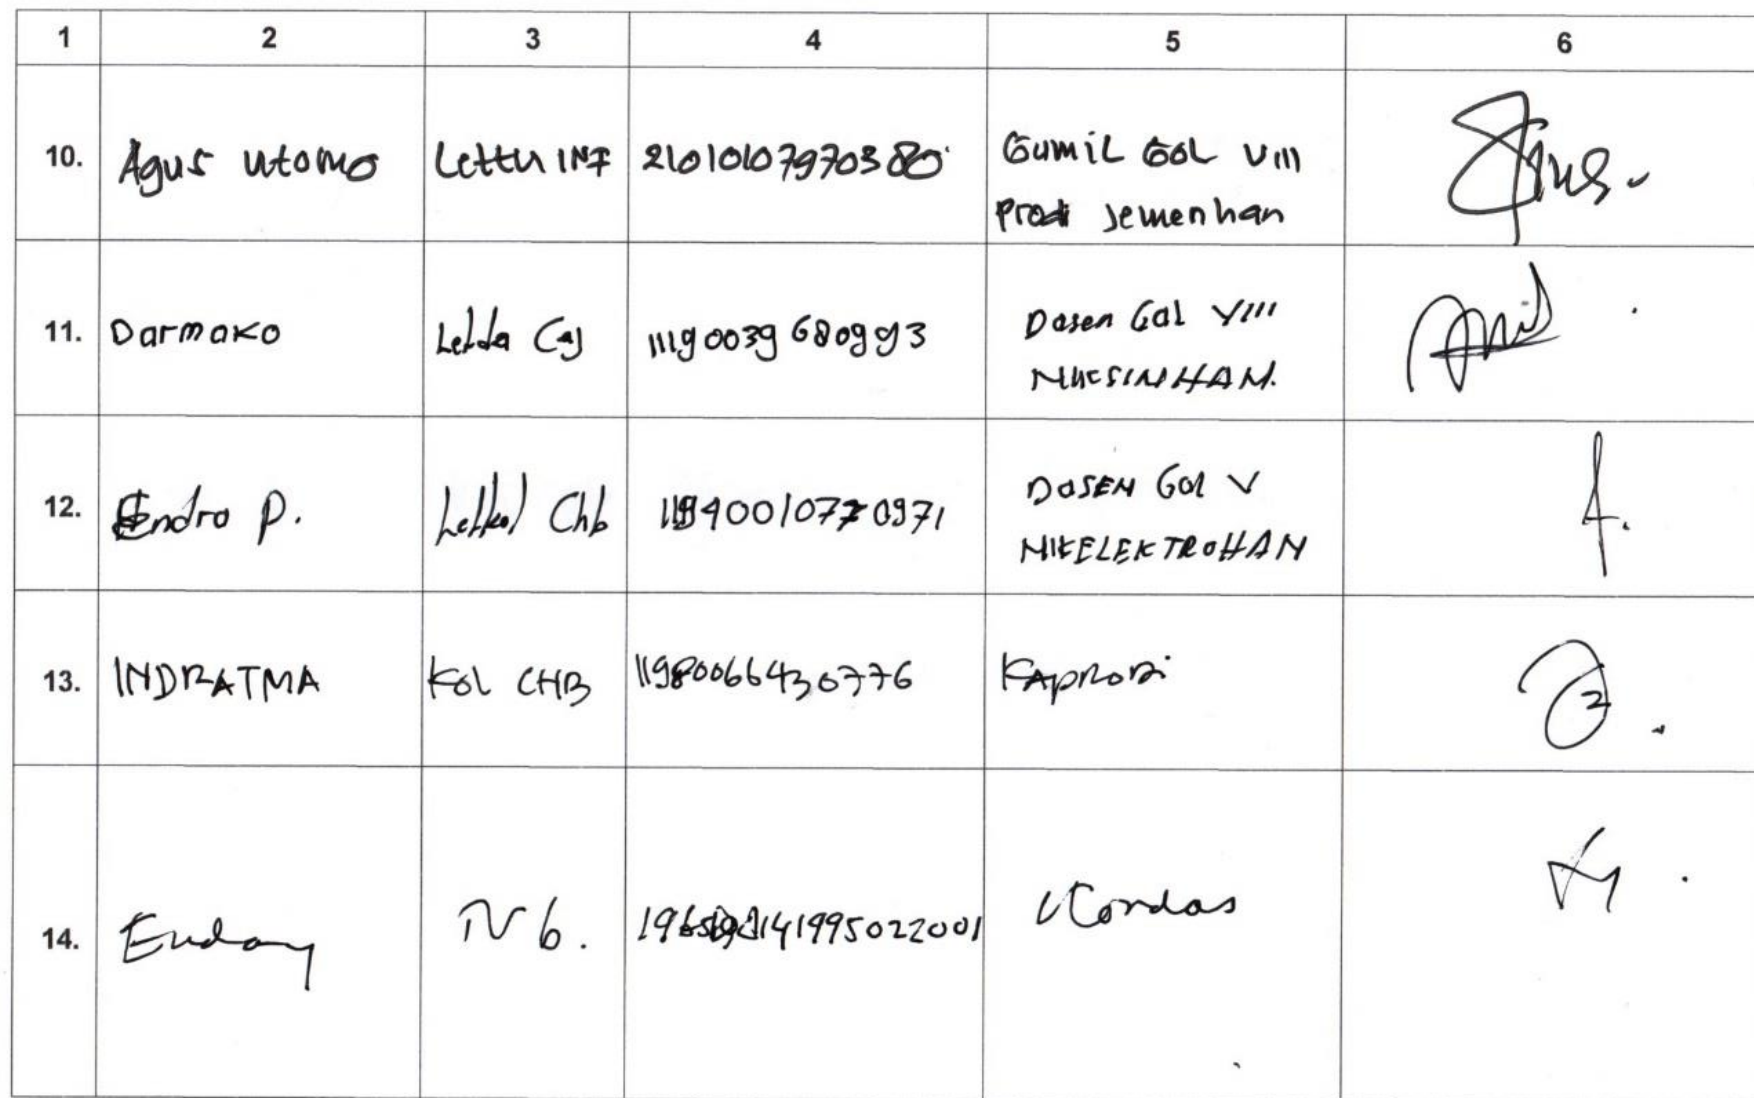 1 2 3 4 5 6
10. Agus Utomo Lettu INF 21010107970380 Gumil GOL VIII
Prodi Jemenhan
11. Darmoko Letda Caj 11190039680993 Dosen Gol VIII
12. Endro P. Letkol Chb 11940010770971 DOSEN Gol V
NIKELEKTROHAN
13. INDRATMA Kol CHB 11980066430776 KAPRODI
14. Endang IV b.